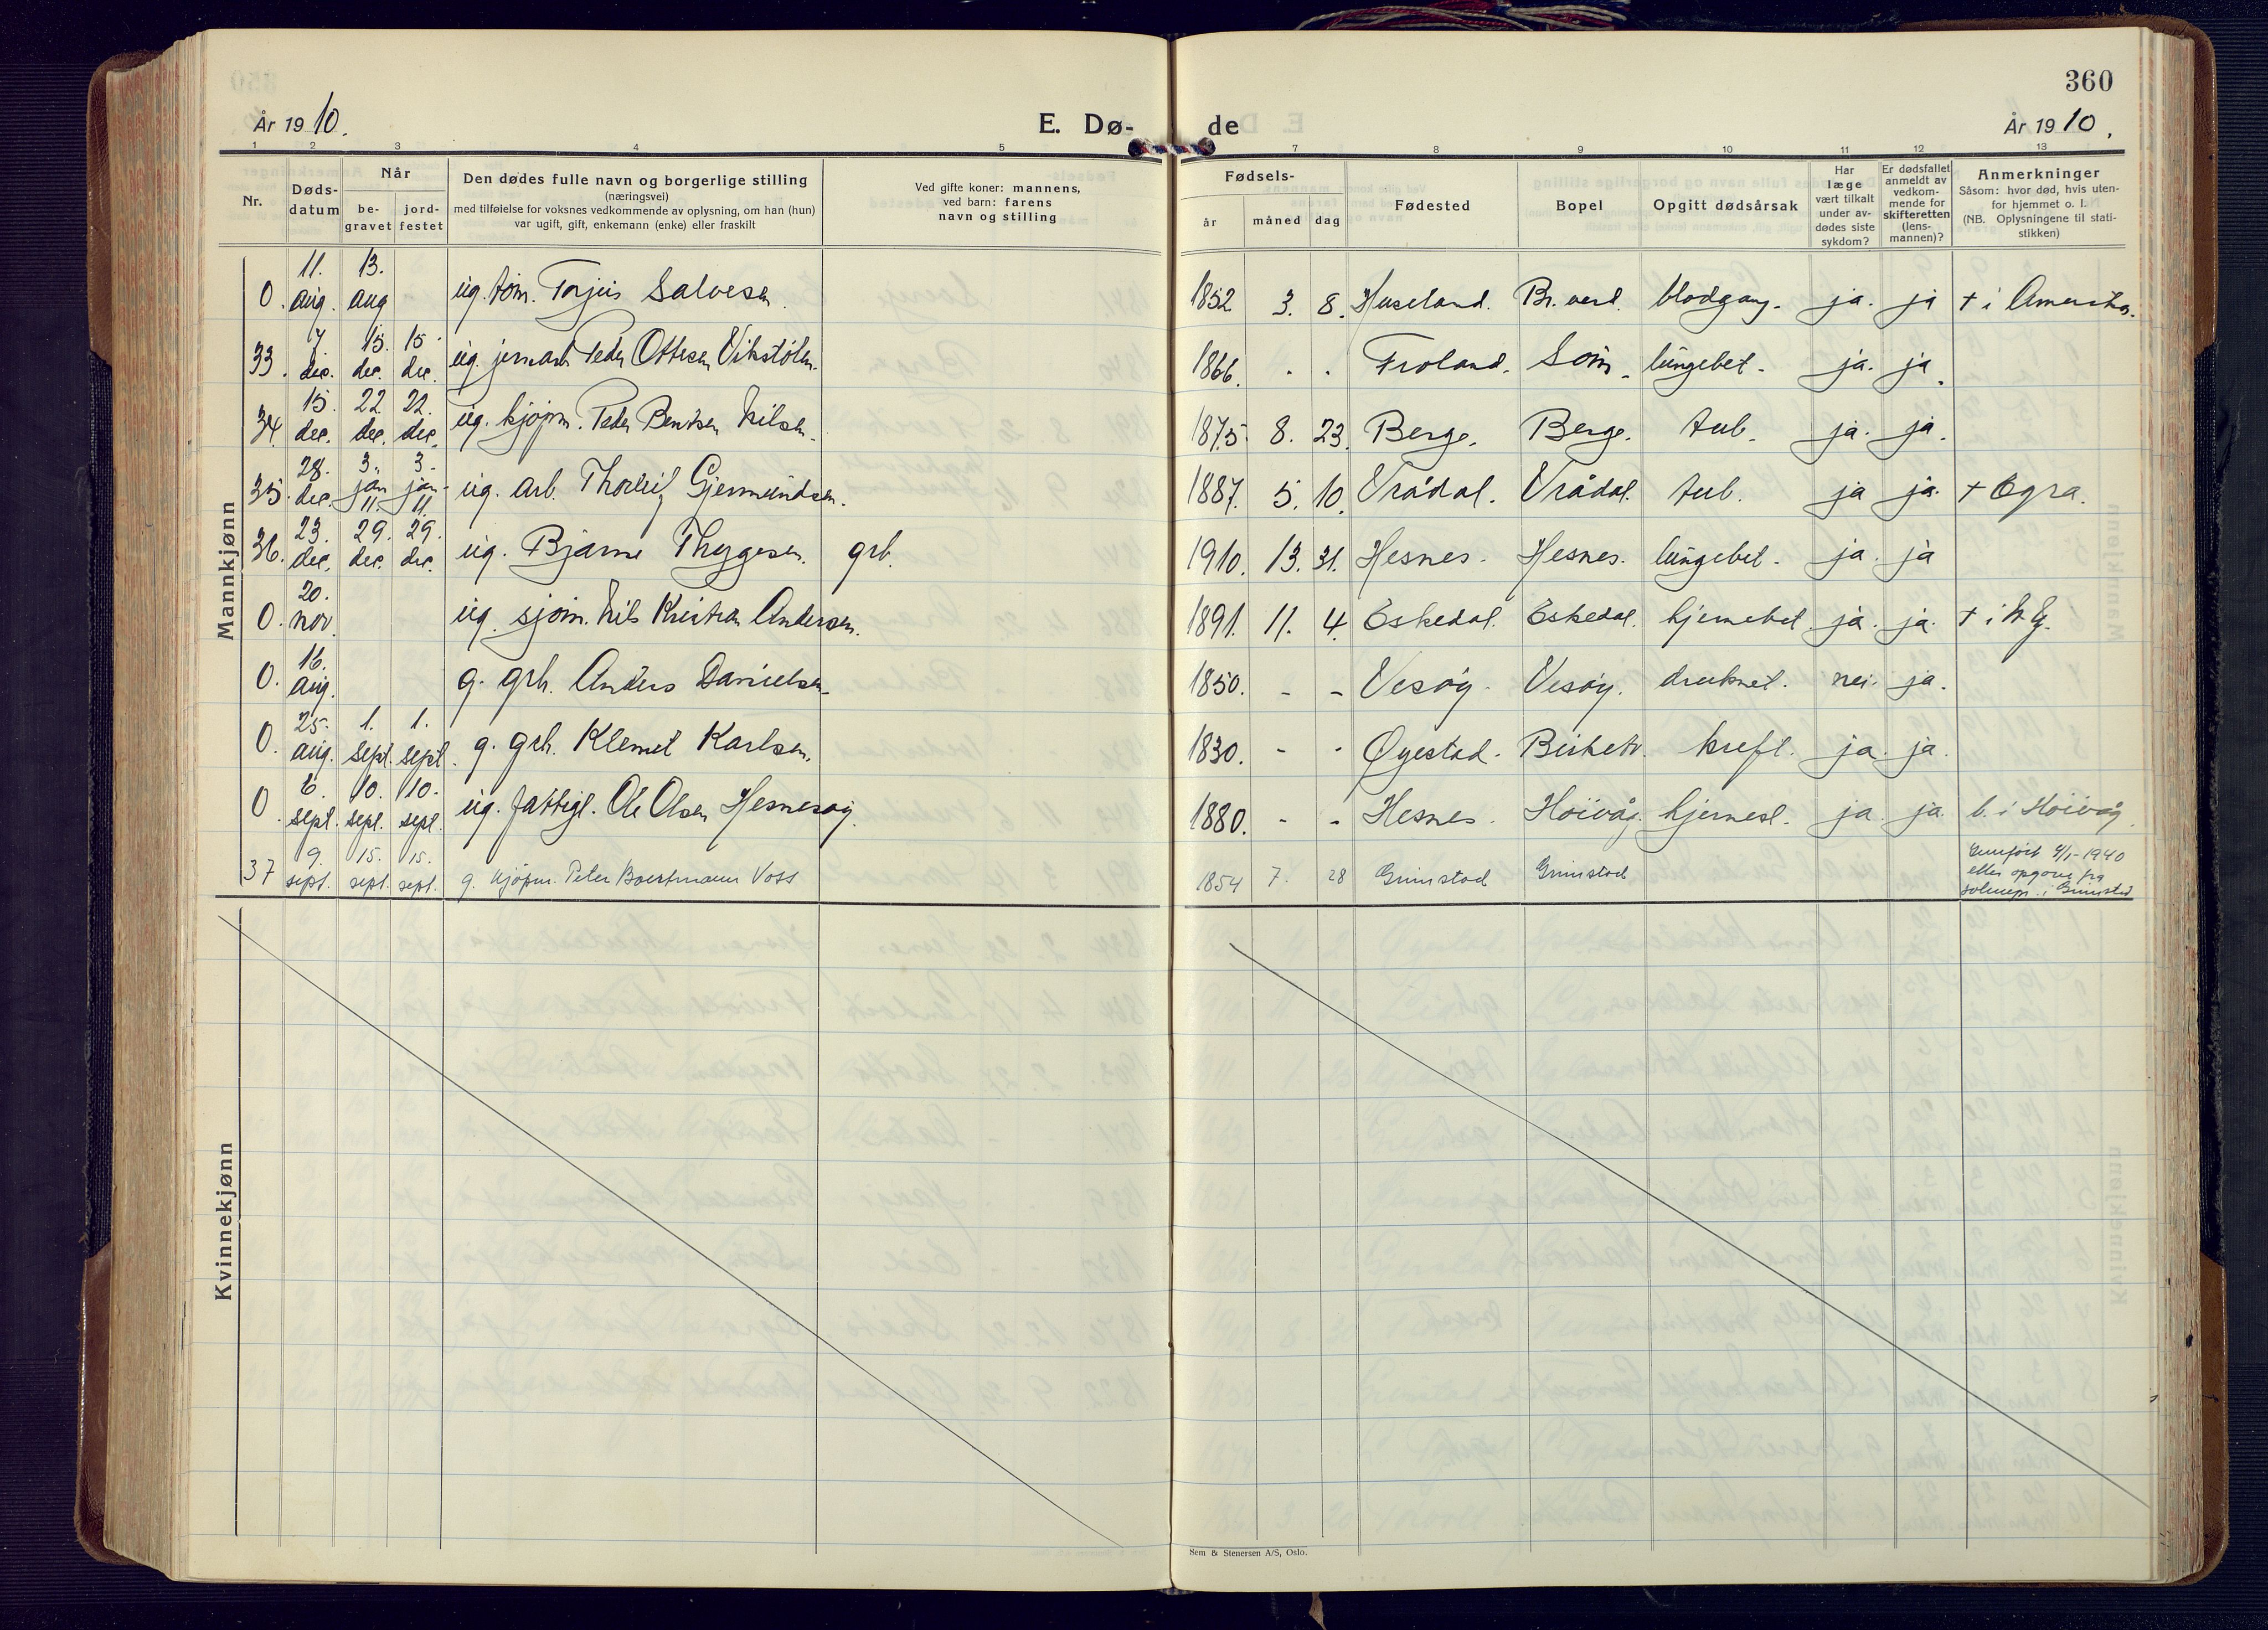 360
År 1910.
E. Dø-
de
År 1910.
1 2 3 4 5 7 8 9 10 11 12 13
Nr.
Døds-
datum
Når
be-
gravet
jord-
festet
Den dødes fulle navn og borgerlige stilling
(næringsvei)
med tilføielse for voksnes vedkommende av oplysning, om han (hun)
var ugift, gift, enkemann (enke) eller fraskilt
Ved gifte koner: mannens,
ved barn: farens
navn og stilling
Fødsels-
år måned dag
Fødested
Bopel
Opgitt dødsårsak
Har
læge
vært tilkalt
under av-
dødes siste
sykdom?
Er dødsfallet
anmeldt av
vedkom-
mende for
skifteretten
(lens-
mannen)?
Anmerkninger
Såsom: hvor død, hvis uten-
for hjemmet o. l.
(NB. Oplysningene til stati-
stikken)
Mannkjønn
0. 11. aug. 13. aug ug. tøm. Torjus Salvesen. 1852 3. 8. Huseland. Br. verl. blodgang. ja. ja + i Amerika.
33. 7 dec. 15. dec. 15. dec. ug. jernarb Peder Ottesen Vikstølen. 1866. Froland. Søm. lungebet. ja. ja.
34. 15. dec. 22 dec. 22. dec. ug. kjøpm. Peder Bentsen Nilsen. 1875 8. 23. Berge. Berge. tub. ja. ja.
35. 28. dec. 3. jan 11. 3. jan 11. ug. arb. Thorleif Gjermundsen. 1887. 5. 10. Vrådal. Vrådal. tub. ja ja. + Ogra.
36. 23. dec. 29. dec. 29. dec. ug. Bjarne Thygesen. grb. 1910. 13. 31. Hesnes. Hesnes. lungebet. ja. ja
0. 20. nov. ug. sjøm. Nils Kristian Andersen. 1891. 11. 4. Eskedal. Eskedal. hjernebet. ja. ja.
0. 16. aug. g. grb. Anders Danielsen. 1850. - - Vesøy. Vesøy. druknet. nei. ja.
0. 25. aug. 1. sept. 1. sept. g. grb. Klemet Karlsen. 1830. - - Øyestad. Birketv. kreft. ja. ja.
0. 6. sept. 10. sept. 10. sept. ug. fattigl. Ole Olsen Hesnesøy. 1880. - - Hesnes. Høivåg. hjernesl. ja. ja. b. i Høivåg.
37 9. sept. 15. sept. 15. sept. g. kjøpm. Peter Boertmann Voss 1854 7. 28 Grimstad Grimstad Innført 4/1-1940
efter opgave fra
soknepr. i Grimstad
Kvinnekjønn
Sem & Stenersen A/S, Oslo.